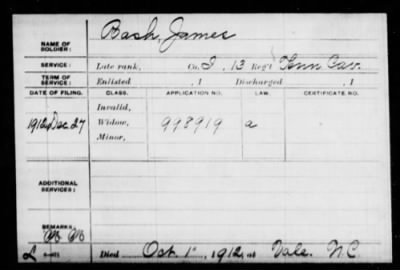 NAME OF SOLDIER: Bash, James
SERVICE: Late rank, Co. I, 13 Reg't Tenn Cav.
TERM OF SERVICE: Enlisted , 1 Discharged , 1
DATE OF FILING. CLASS. APPLICATION NO. LAW. CERTIFICATE NO.
Invalid,
1912 Dec 27 Widow, 998919 a
Minor,
ADDITIONAL SERVICES:
REMARKS:
Died Oct. 1", 1912, at Vale. N.C.